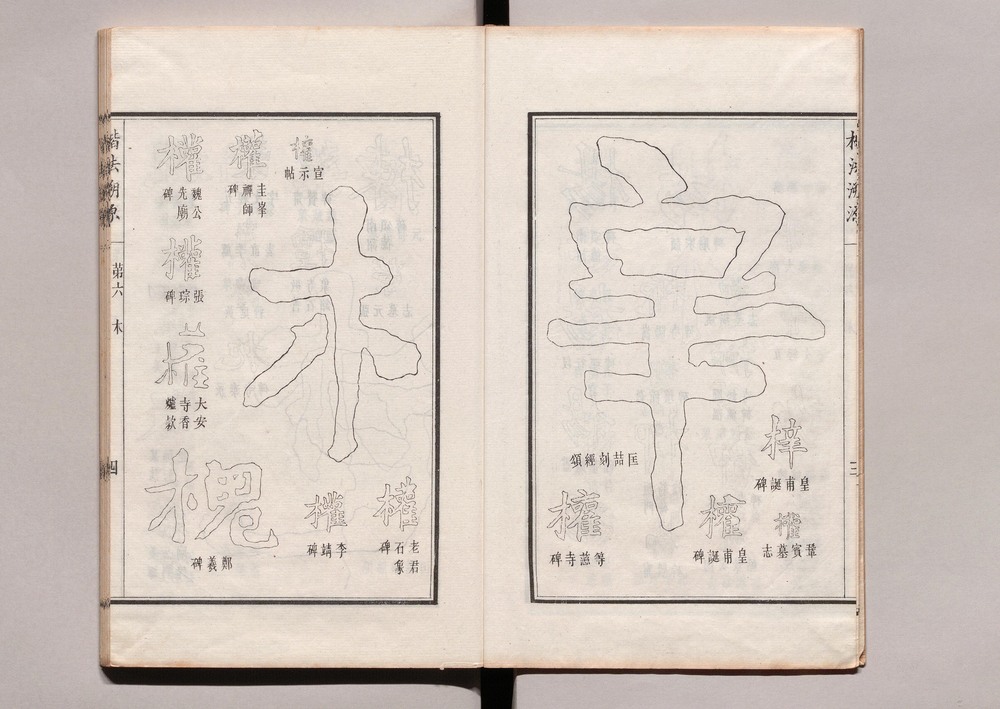 楷法溯源
三
辛
匡喆刻經頌
梓
皇甫誕碑
權
鞏賓墓志
權
皇甫誕碑
權
等慈寺碑
木
權
老君石象碑
權
李靖碑
權
宣示帖
權
圭峯禪師碑
權
魏公先廟碑
權
張琮碑
權
大安寺香爐款
槐
鄭羲碑
楷法溯源
第六 木
四